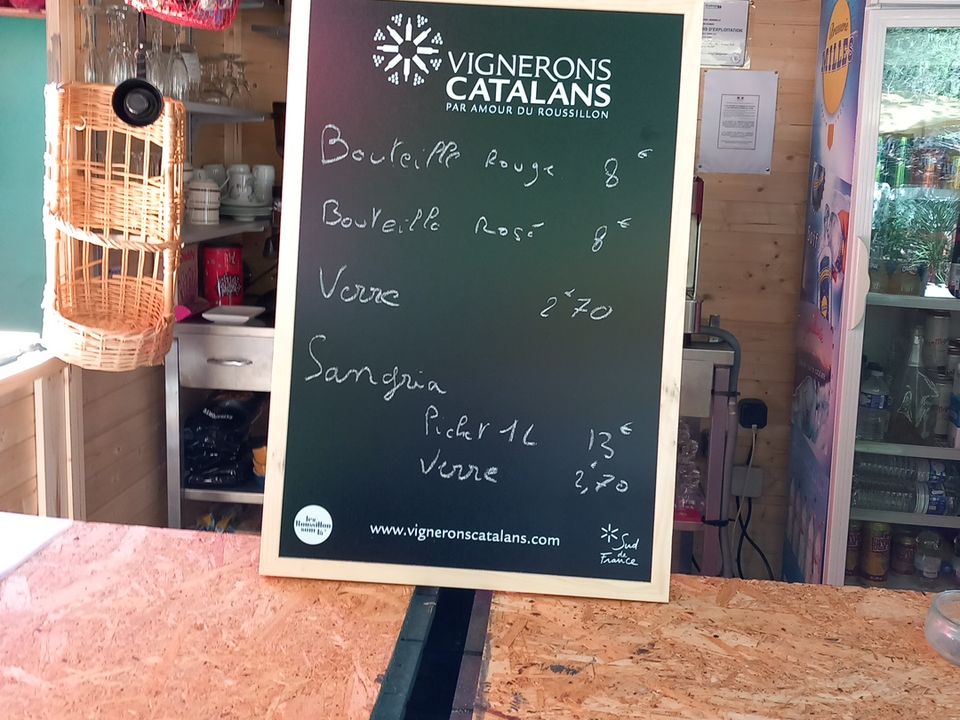 VIGNERONS
CATALANS
PAR AMOUR DU ROUSSILLON
Bouteille Rouge 8€
Bouteille Rosé 8€
Verre 2€70
Sangria
Pichet 1L 13€
Verre 2,€70
les
Roussillon
sont là
www.vigneronscatalans.com
Sud
de
France
D'EXPLOITATION